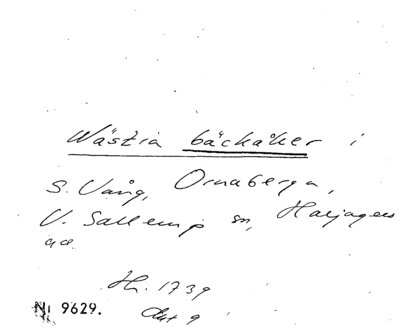 Wästra bäckåker i
S. Vång, Ornaberga,
V. Sallerup sn, Harjagers
hd.
Hr. 1739
Akt 9
Nr 9629.